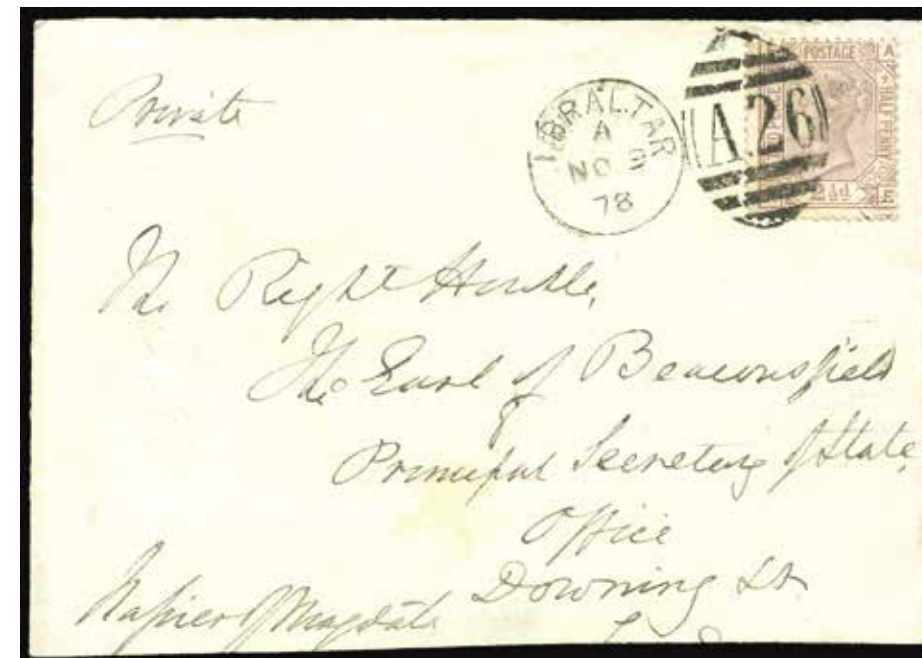 Private
GIBRALTAR
A
NO 9
78
A26
POSTAGE
A
HALFPENNY
2½d
E
The Right Honble,
The Earl of Beaconsfield
Principal Secretary of State,
Office
Downing St
Napier of Magdala